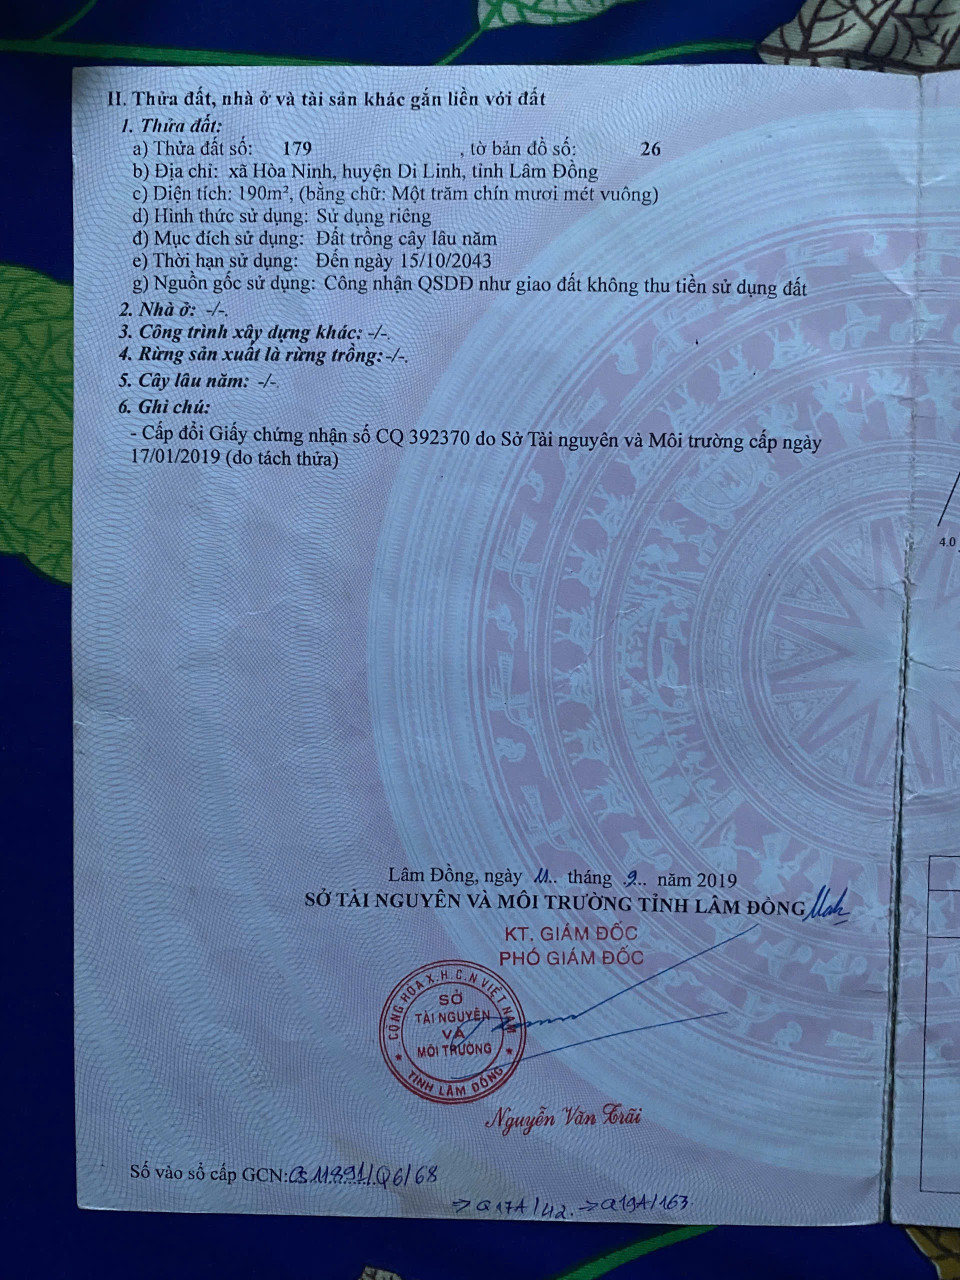 II. Thửa đất, nhà ở và tài sản khác gắn liền với đất
1. Thửa đất:
a) Thửa đất số: 179 , tờ bản đồ số: 26
b) Địa chỉ: xã Hòa Ninh, huyện Di Linh, tỉnh Lâm Đồng
c) Diện tích: 190m², (bằng chữ: Một trăm chín mươi mét vuông)
d) Hình thức sử dụng: Sử dụng riêng
đ) Mục đích sử dụng: Đất trồng cây lâu năm
e) Thời hạn sử dụng: Đến ngày 15/10/2043
g) Nguồn gốc sử dụng: Công nhận QSDĐ như giao đất không thu tiền sử dụng đất
2. Nhà ở: -/-.
3. Công trình xây dựng khác: -/-.
4. Rừng sản xuất là rừng trồng: -/-.
5. Cây lâu năm: -/-
6. Ghi chú:
- Cấp đổi Giấy chứng nhận số CQ 392370 do Sở Tài nguyên và Môi trường cấp ngày
17/01/2019 (do tách thửa)
4.0
Lâm Đồng, ngày 11.. tháng .2.. năm 2019
SỞ TÀI NGUYÊN VÀ MÔI TRƯỜNG TỈNH LÂM ĐỒNG
KT. GIÁM ĐỐC
PHÓ GIÁM ĐỐC
CỘNG HÒA X.H.C.N VIỆT NAM
SỞ
TÀI NGUYÊN
VÀ
MÔI TRƯỜNG
TỈNH LÂM ĐỒNG
Nguyễn Văn Trãi
Số vào sổ cấp GCN: CS 11891/Q6/68
→ Q17A/42. → Q19A/163.